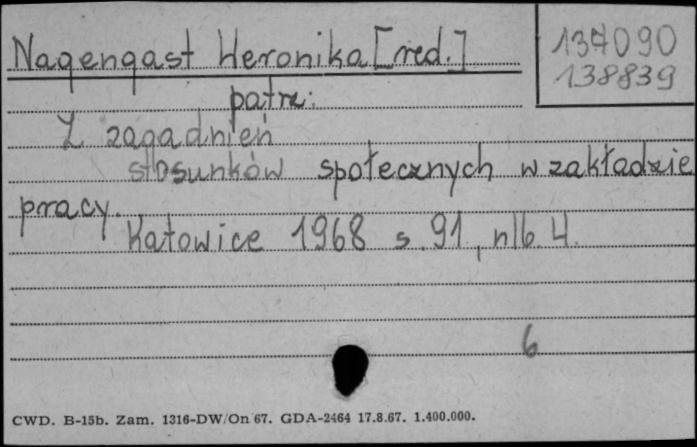 Nagengast Weronika [red.]
137090
138839
patrz:
Z zagadnień
stosunków społecznych w zakładzie
pracy.
Katowice 1968 s. 91, nlb. 4.
6
CWD. B-15b. Zam. 1316-DW/On 67. GDA-2464 17.8.67. 1.400.000.